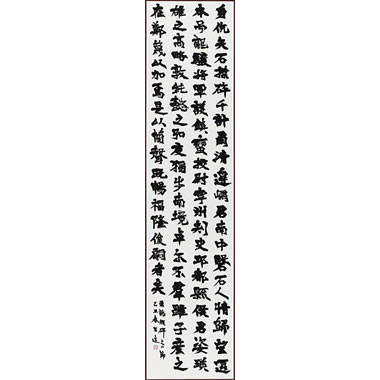 身伉矢石撲碎千計肅清邊嵎君南中磐石人情歸望遷
本号龍驤將軍護鎮蠻校尉寧州刺史邛都縣侯君姿瑛
雄之高略敦純懿之弘度獨步南境卓尓不羣雖子產之
在鄭篾以加焉是以蘭聲既暢福隆後嗣者矣
爨龍顏碑